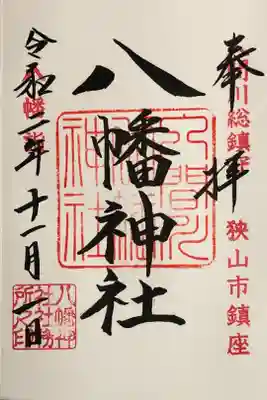 奉拝
入間川総鎮守
狭山市鎮座
八幡神社
入間川八幡神社
令和二年十一月一日
八幡神社社務所之印